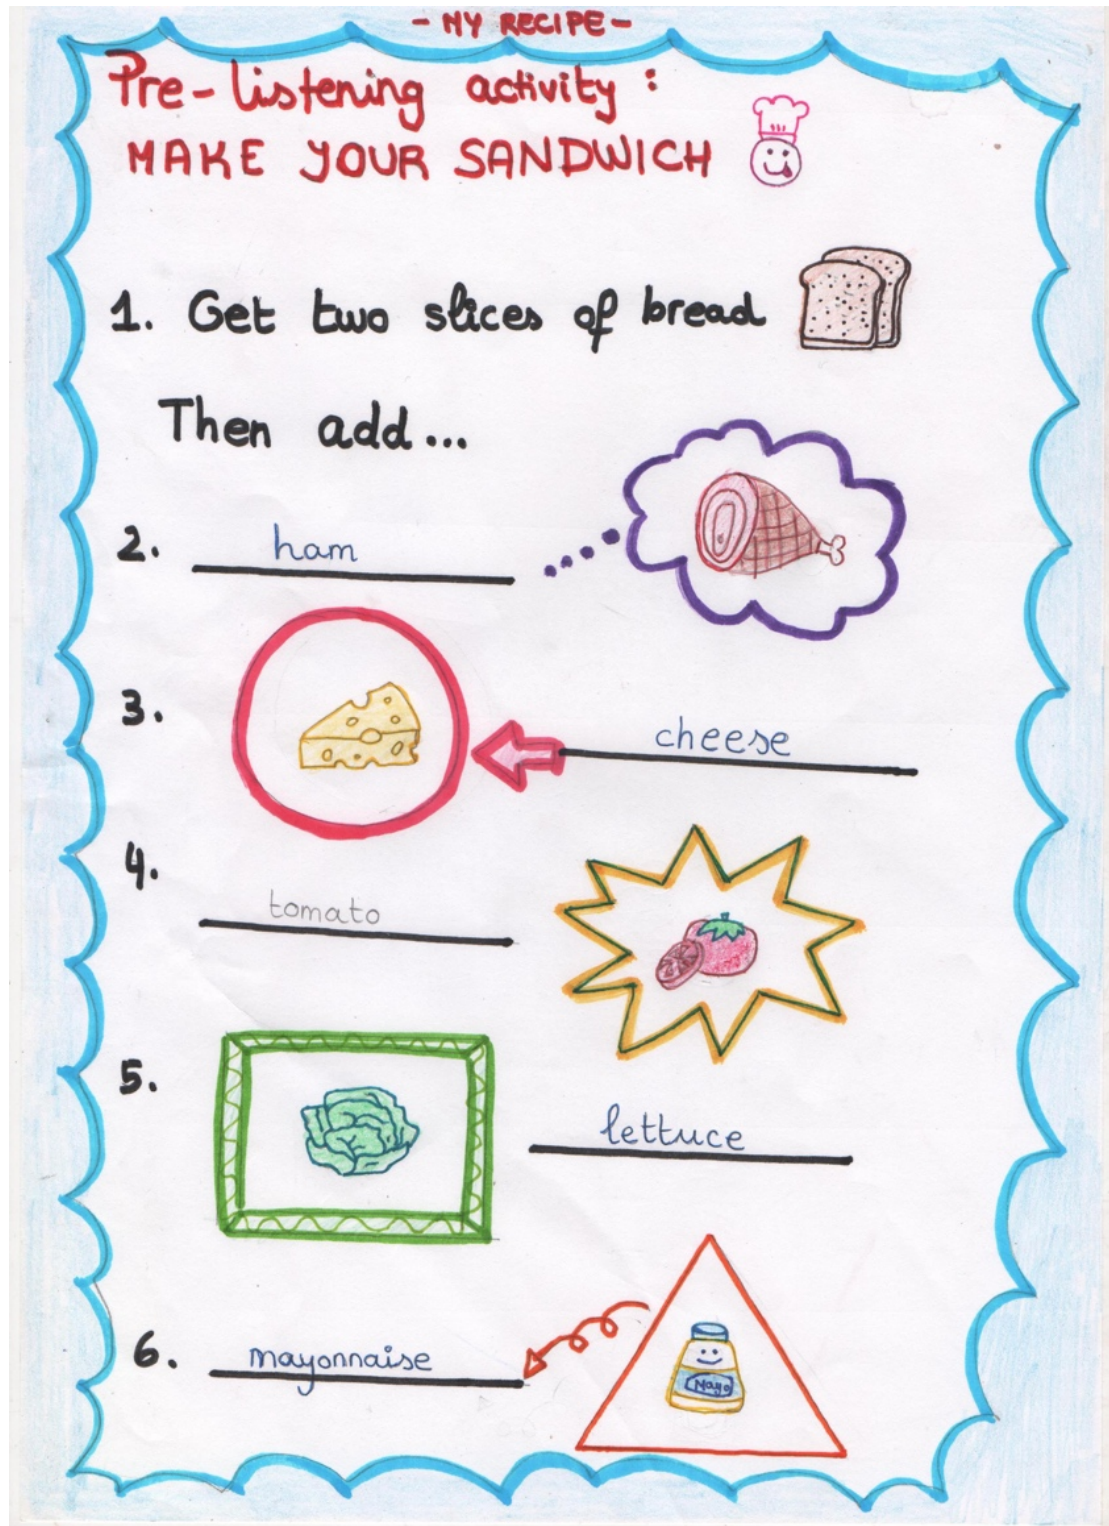 - MY RECIPE -
Pre-listening activity :
MAKE YOUR SANDWICH
1. Get two slices of bread
Then add...
2. ham
3. cheese
4. tomato
5. lettuce
6. mayonnaise
Mayo